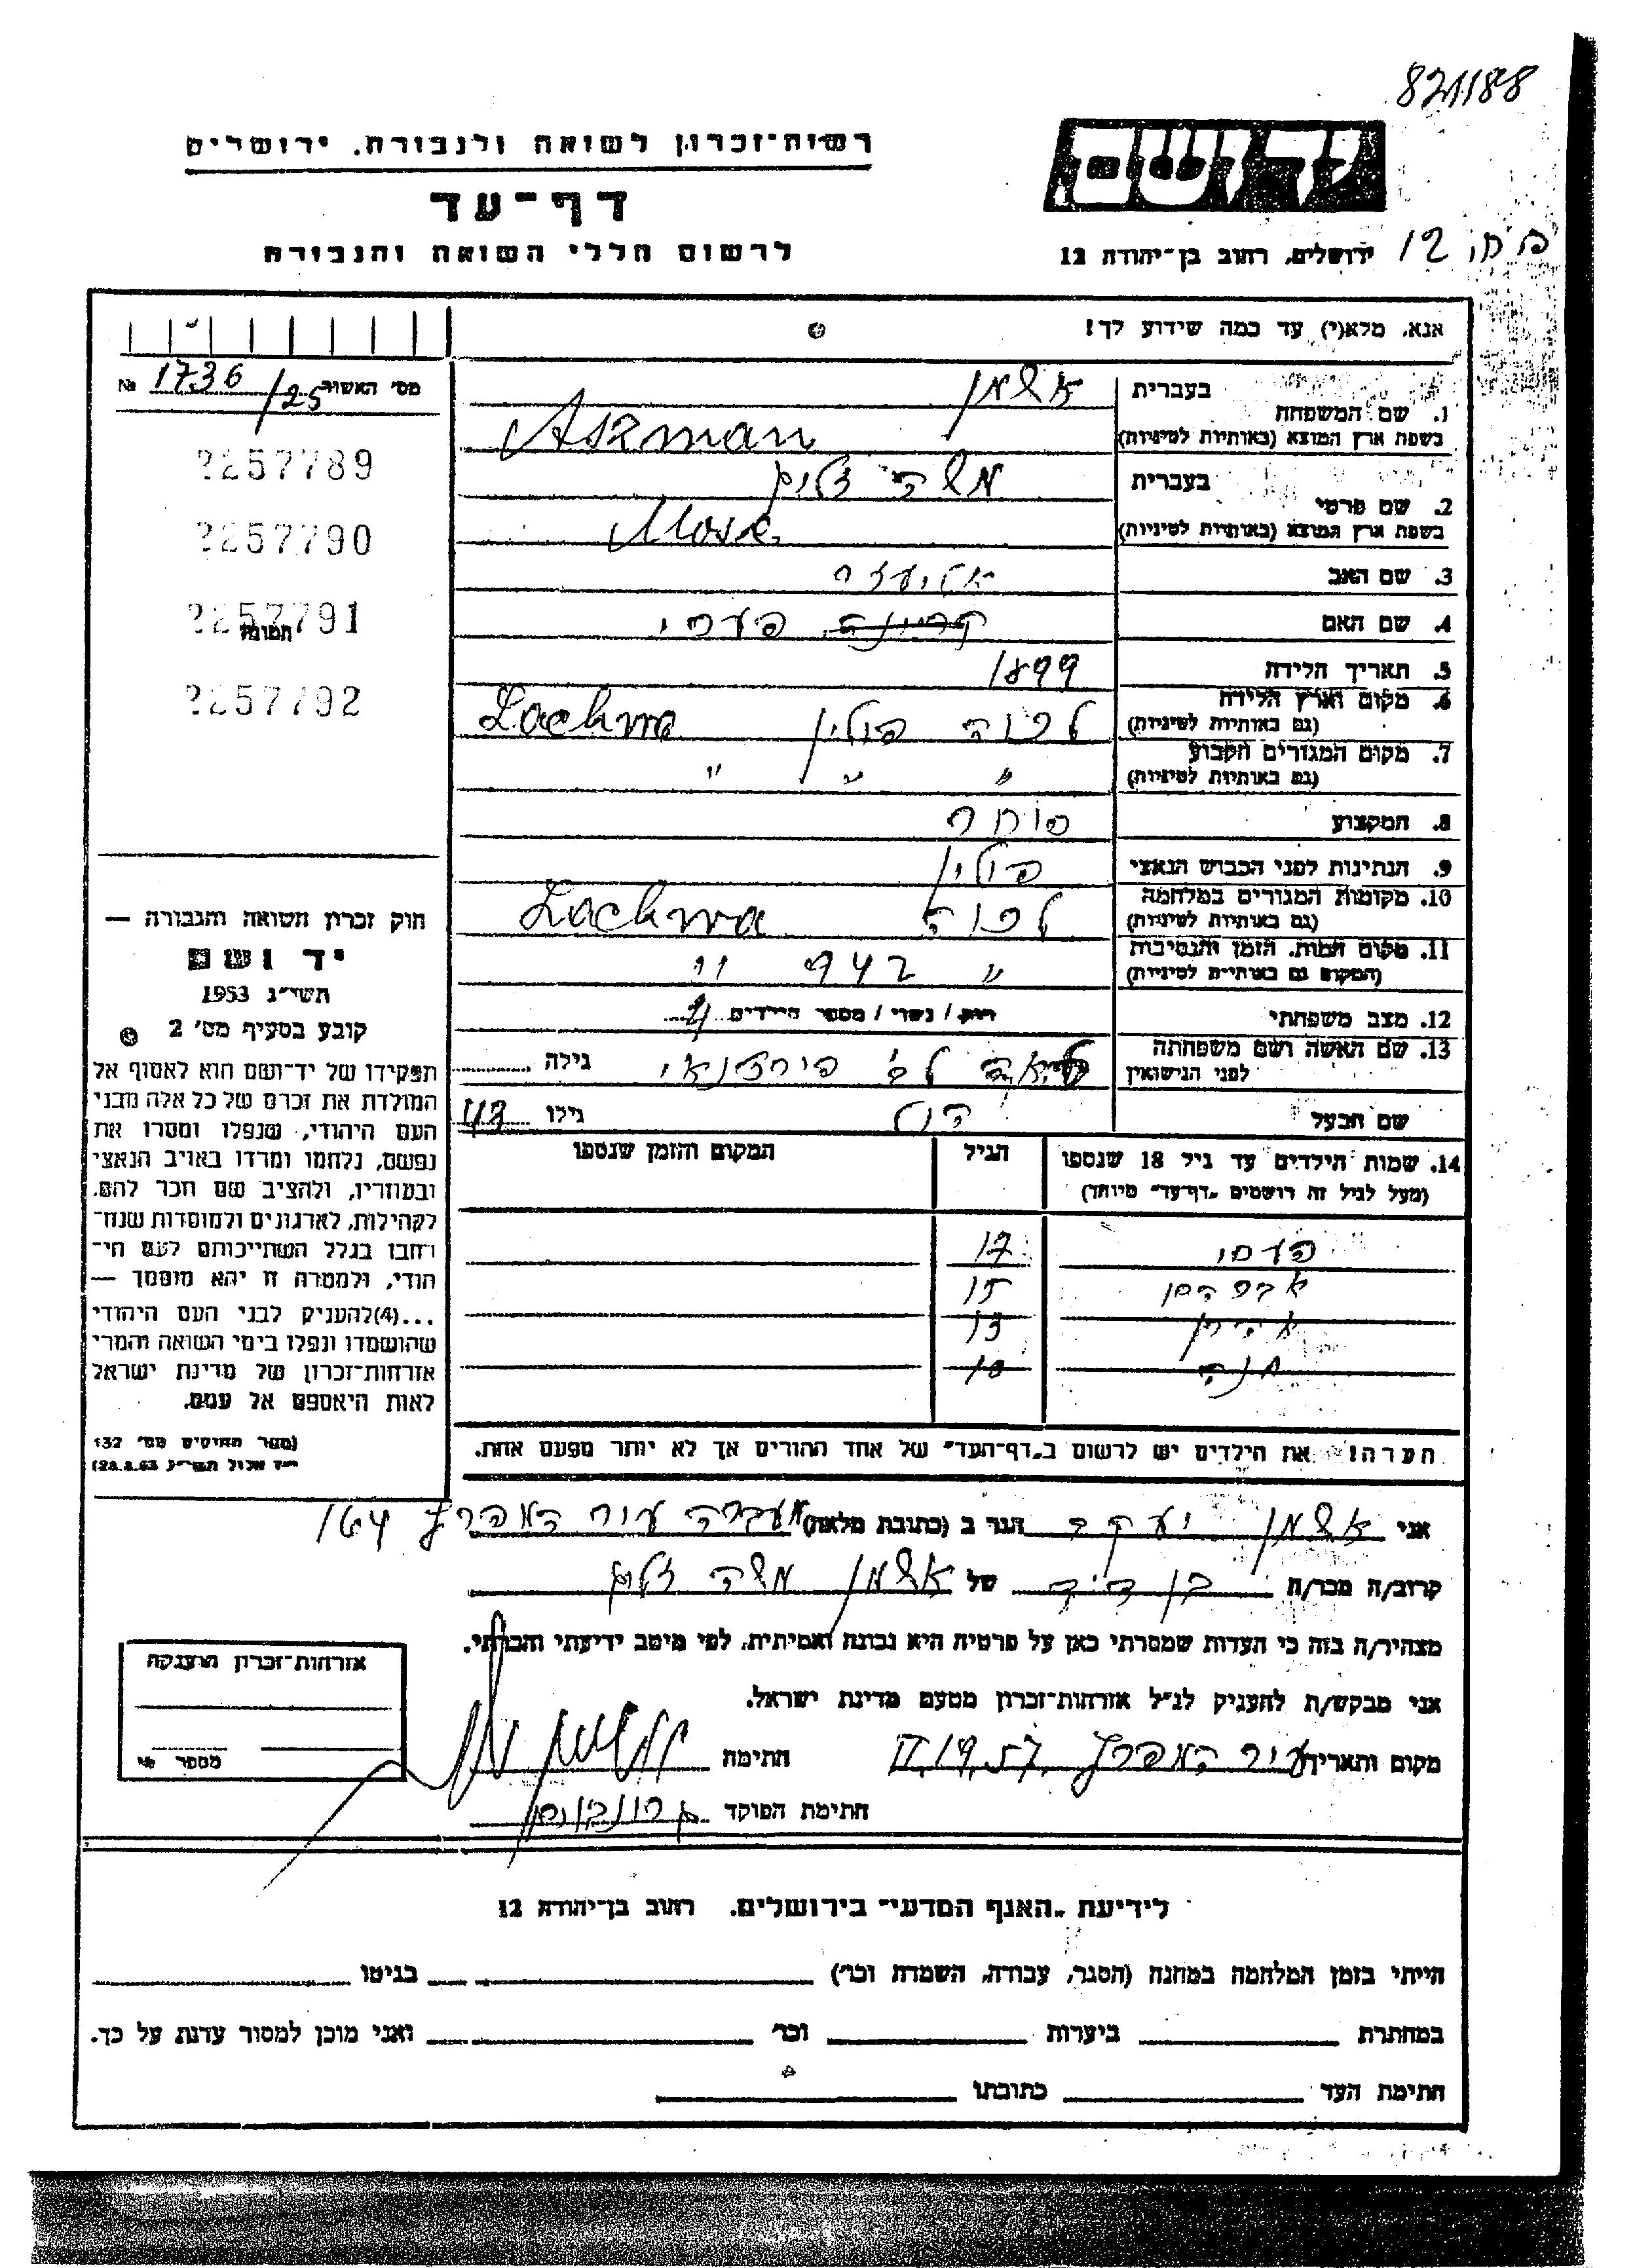 821188
יד ושם
רשות־זכרון לשואה ולגבורה, ירושלים
דף־עד
לרשום חללי השואה והגבורה
ירושלים, רחוב בן־יהודה 12
12
אנא, מלא(י) עד כמה שידוע לך!
מס' האשור № 1736/25
2257789
2257790
2257791
תמונה
2257792
חוק זכרון השואה והגבורה —
יד ושם
תשי"ג 1953
קובע בסעיף מס' 2
תפקידו של יד־ושם הוא לאסוף אל
המולדת את זכרם של כל אלה מבני
העם היהודי, שנפלו ומסרו את
נפשם, נלחמו ומרדו באויב הנאצי
ובעוזריו, ולהציב שם וזכר להם,
לקהילות, לארגונים ולמוסדות שנח־
רבו בגלל השתייכותם לעם הי־
הודי, ולמטרה זו יהא מוסמך —
...(4)להעניק לבני העם היהודי
שהושמדו ונפלו בימי השואה והמרי
אזרחות־זכרון של מדינת ישראל
לאות היאספם אל עמם.
(ספר החוקים מס' 132
י"ז אלול תשי"ג 28.8.53)
1. שם המשפחה
בעברית
בשפת ארץ המוצא (באותיות לטיניות)
Aszman
2. שם פרטי
בעברית משה זליג
בשפת ארץ המוצא (באותיות לטיניות)
3. שם האב אליעזר
4. שם האם
5. תאריך הלידה 1899
6. מקום וארץ הלידה
(גם באותיות לטיניות) פולין Lachwa
7. מקום המגורים הקבוע
(גם באותיות לטיניות) " " "
8. המקצוע סוחר
9. הנתינות לפני הכבוש הנאצי פולין
10. מקומות המגורים במלחמה
(גם באותיות לטיניות) Lachwa
11. מקום המות, הזמן והנסיבות
(המקום גם באותיות לטיניות) " 942 "
12. מצב משפחתי רווק / נשוי / מספר הילדים 4
13. שם האשה ושם משפחתה
לפני הנישואין
גילה
שם הבעל גילו 43
14. שמות הילדים עד גיל 18 שנספו
(מעל לגיל זה רושמים "דף־עד" מיוחד)
הגיל
המקום והזמן שנספו
17
אברהם 15
אהרון 13
חנה 10
הערה: את הילדים יש לרשום ב"דף־העד" של אחד ההורים אך לא יותר מפעם אחת.
אני יעקב הגר ב (כתובת מלאה) מעברה עיר המפרץ 164
קרוב/ה מכר/ה בן דוד של משה זליג
מצהיר/ה בזה כי העדות שמסרתי כאן על פרטיה היא נכונה ואמיתית, לפי מיטב ידיעתי והכרתי.
אני מבקש/ת להעניק לנ"ל אזרחות־זכרון מטעם מדינת ישראל.
מקום ותאריך עיר המפרץ חתימה
חתימת הפוקד
אזרחות־זכרון הוענקה
מספר
לידיעת "האגף המדעי" בירושלים. רחוב בן־יהודה 12
הייתי בזמן המלחמה במחנה (הסגר, עבודה, השמדה וכו') בגיטו
במחתרת ביערות וכו' ואני מוכן למסור עדות על כך.
חתימת העד כתובתו